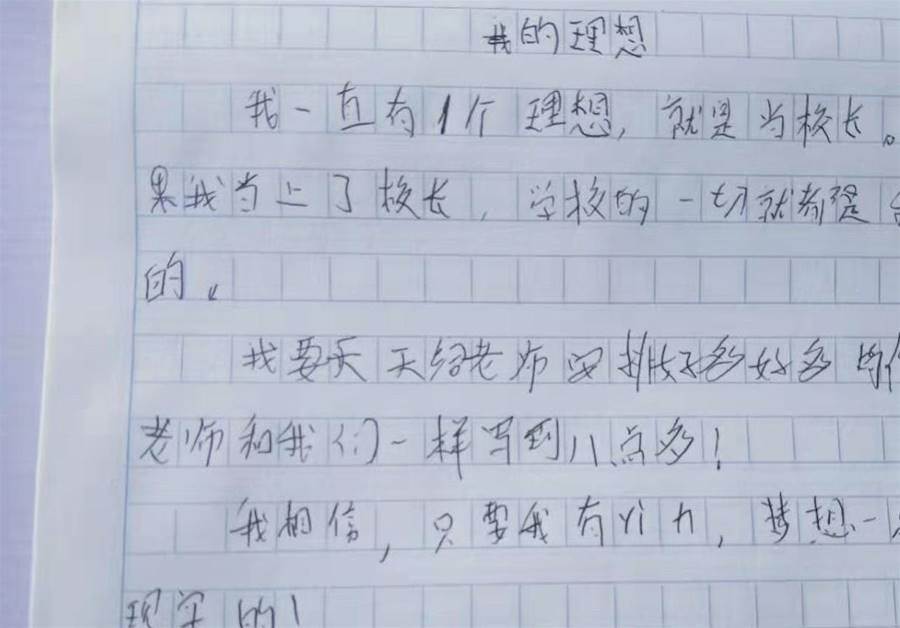 我的理想
我一直有1个理想，就是当校长。
果我当上了校长，学校的一切就都是
的。
我要天天给老师安排好多好多的
老师和我们一样写到八点多！
我相信，只要我有yi力，梦想一
现实的！